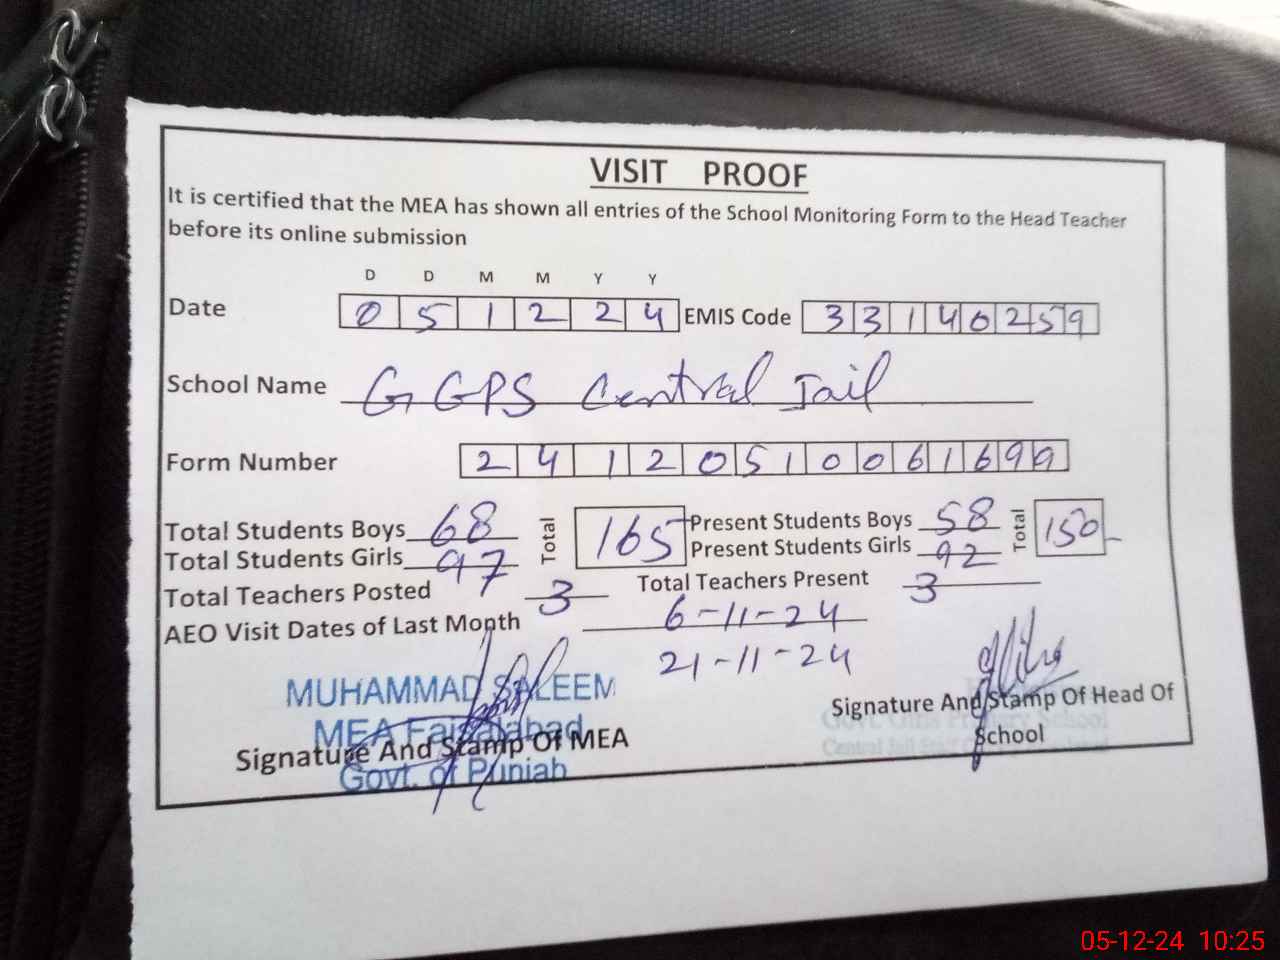 VISIT PROOF
It is certified that the MEA has shown all entries of the School Monitoring Form to the Head Teacher
before its online submission
D D M M Y Y
Date 0 5 1 2 2 4 EMIS Code 3 3 1 4 0 2 5 9
School Name GGPS Central Jail
Form Number 2 4 1 2 0 5 1 0 0 6 1 6 9 9
Total Students Boys 68 Total 165 Present Students Boys 58 Total 150
Total Students Girls 97 Present Students Girls 92
Total Teachers Posted 3 Total Teachers Present 3
AEO Visit Dates of Last Month 6-11-24
21-11-24
MUHAMMAD SALEEM
MEA Faisalabad
Govt. of Punjab
Signature And Stamp Of MEA
Signature And Stamp Of Head Of
School
Govt. Girls Primary School
Central Jail
05-12-24 10:25